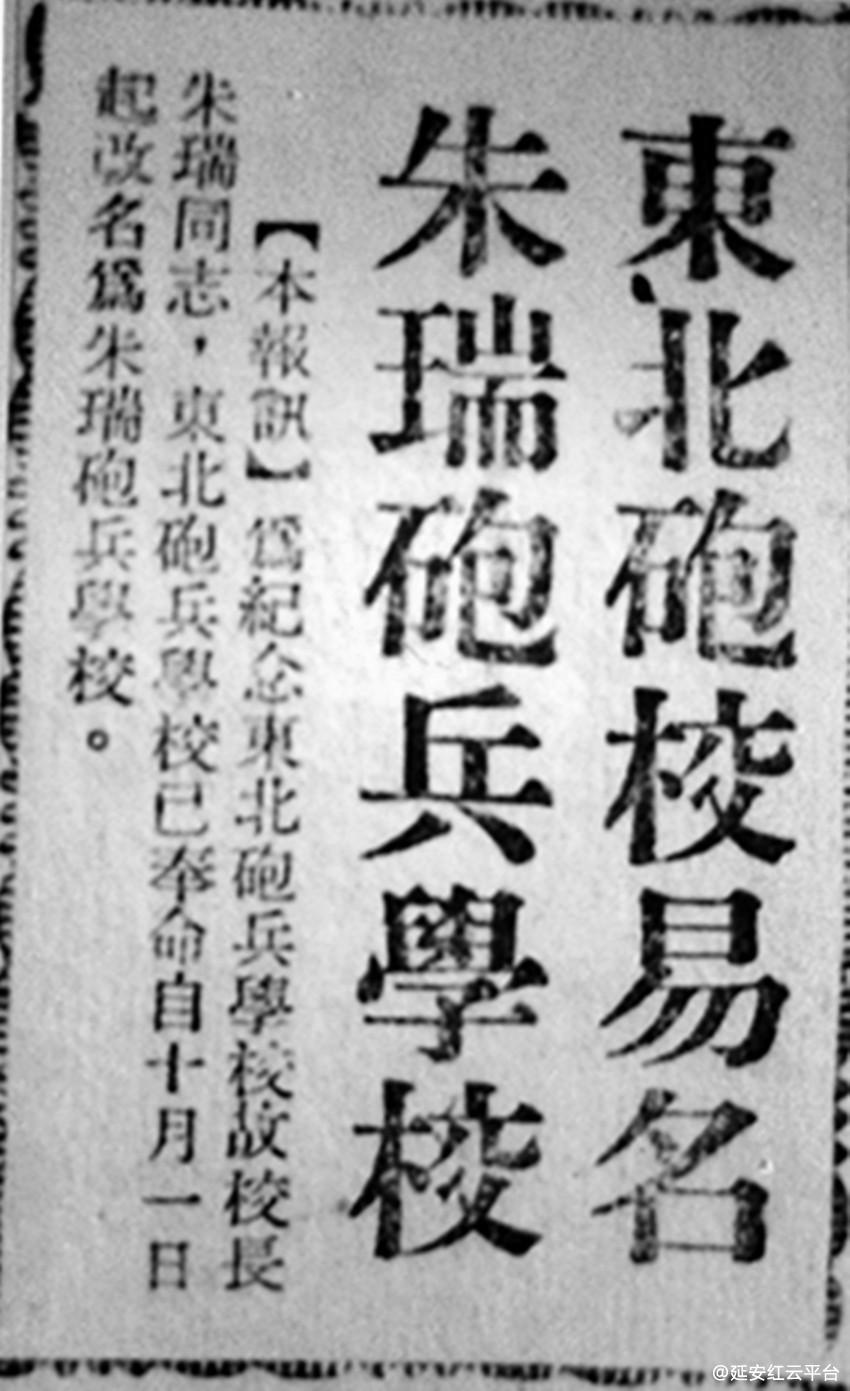 東北砲校易名
朱瑞砲兵學校
【本報訊】爲紀念東北砲兵學校故校長
朱瑞同志，東北砲兵學校已奉命自十月一日
起改名爲朱瑞砲兵學校。
@延安红云平台